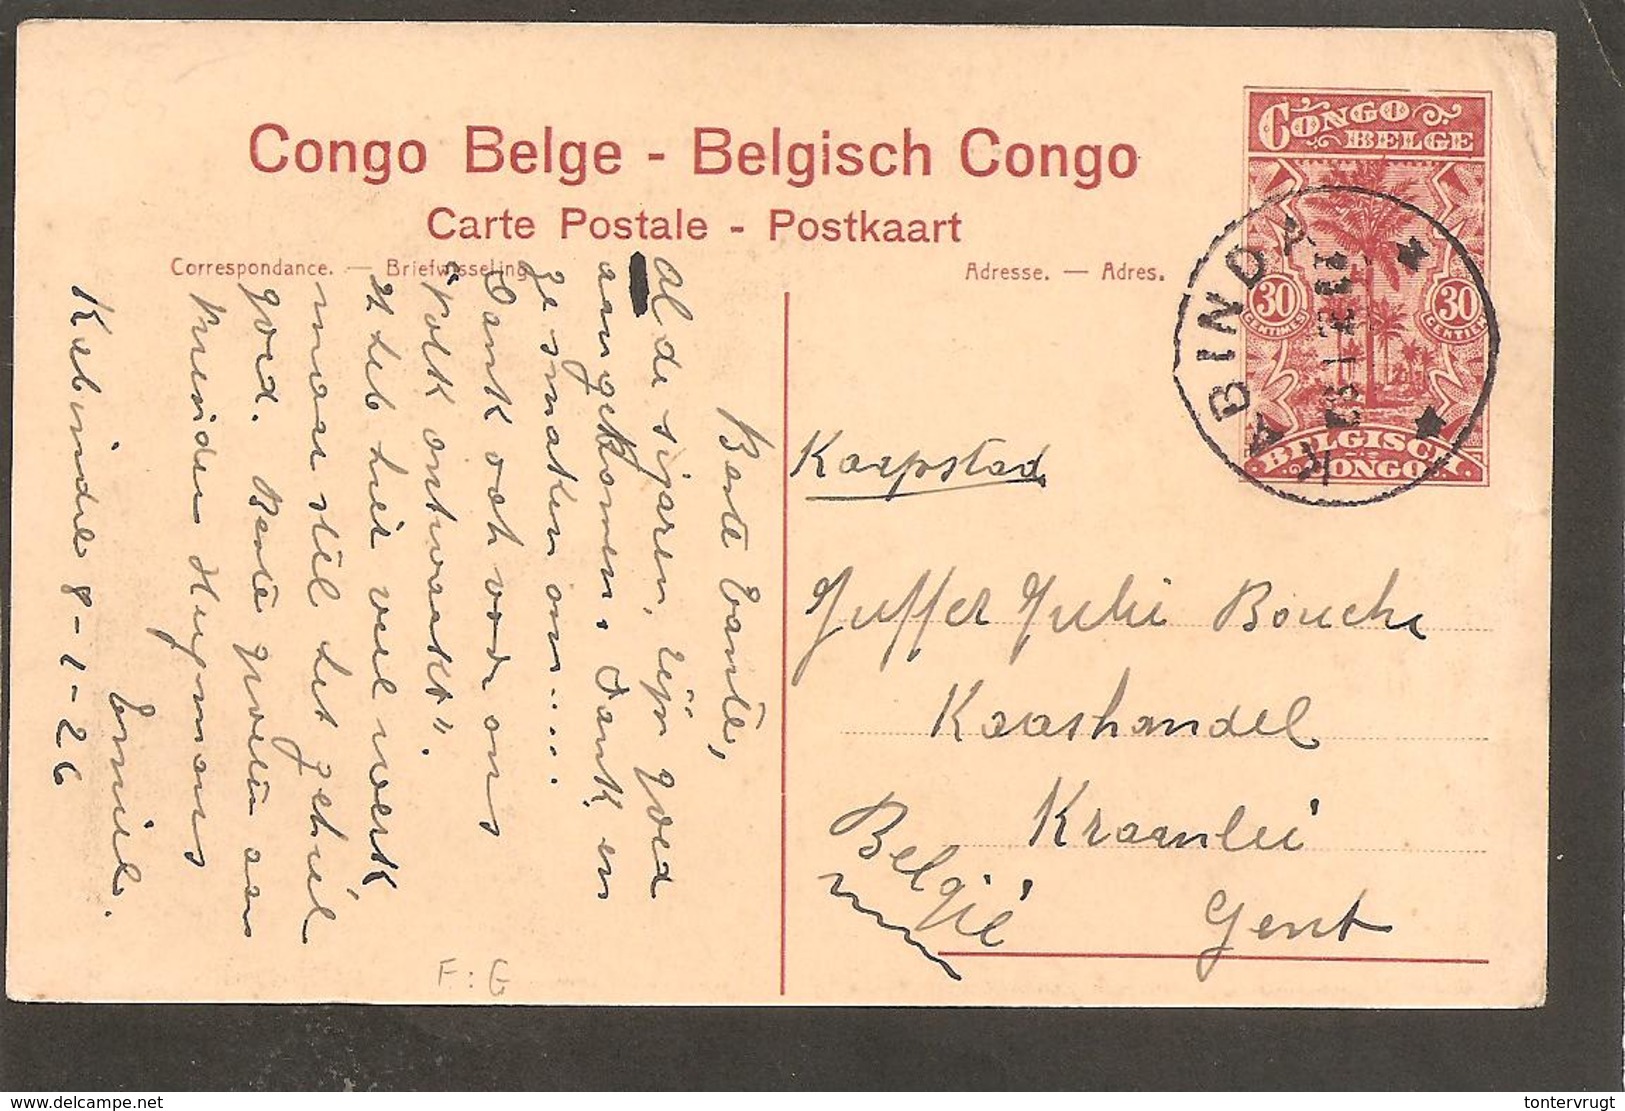 Congo Belge - Belgisch Congo
Carte Postale - Postkaart
Correspondance. — Briefwisseling
Adresse. — Adres.
CONGO
BELGE
30
CENTIMES
30
CENTIEM
BELGISCH
CONGO
KABINDA
Beste Tante,
Al de sijaren, zijn goed
aangekomen. Dank en
ge smaken om.....
Dank ook voor ons
"Volk ontwaakt".
'k Heb hier veel werk
maar stil het geheel
goed. Beste groeten aan
Vrienden Huymans
Emiel.
Kabinda 8-1-26
Kaapstad
Juffer Julie Bouche
Kaashandel
Kraanlei
Gent
België
F: G
www.delcampe.net
tontervrugt